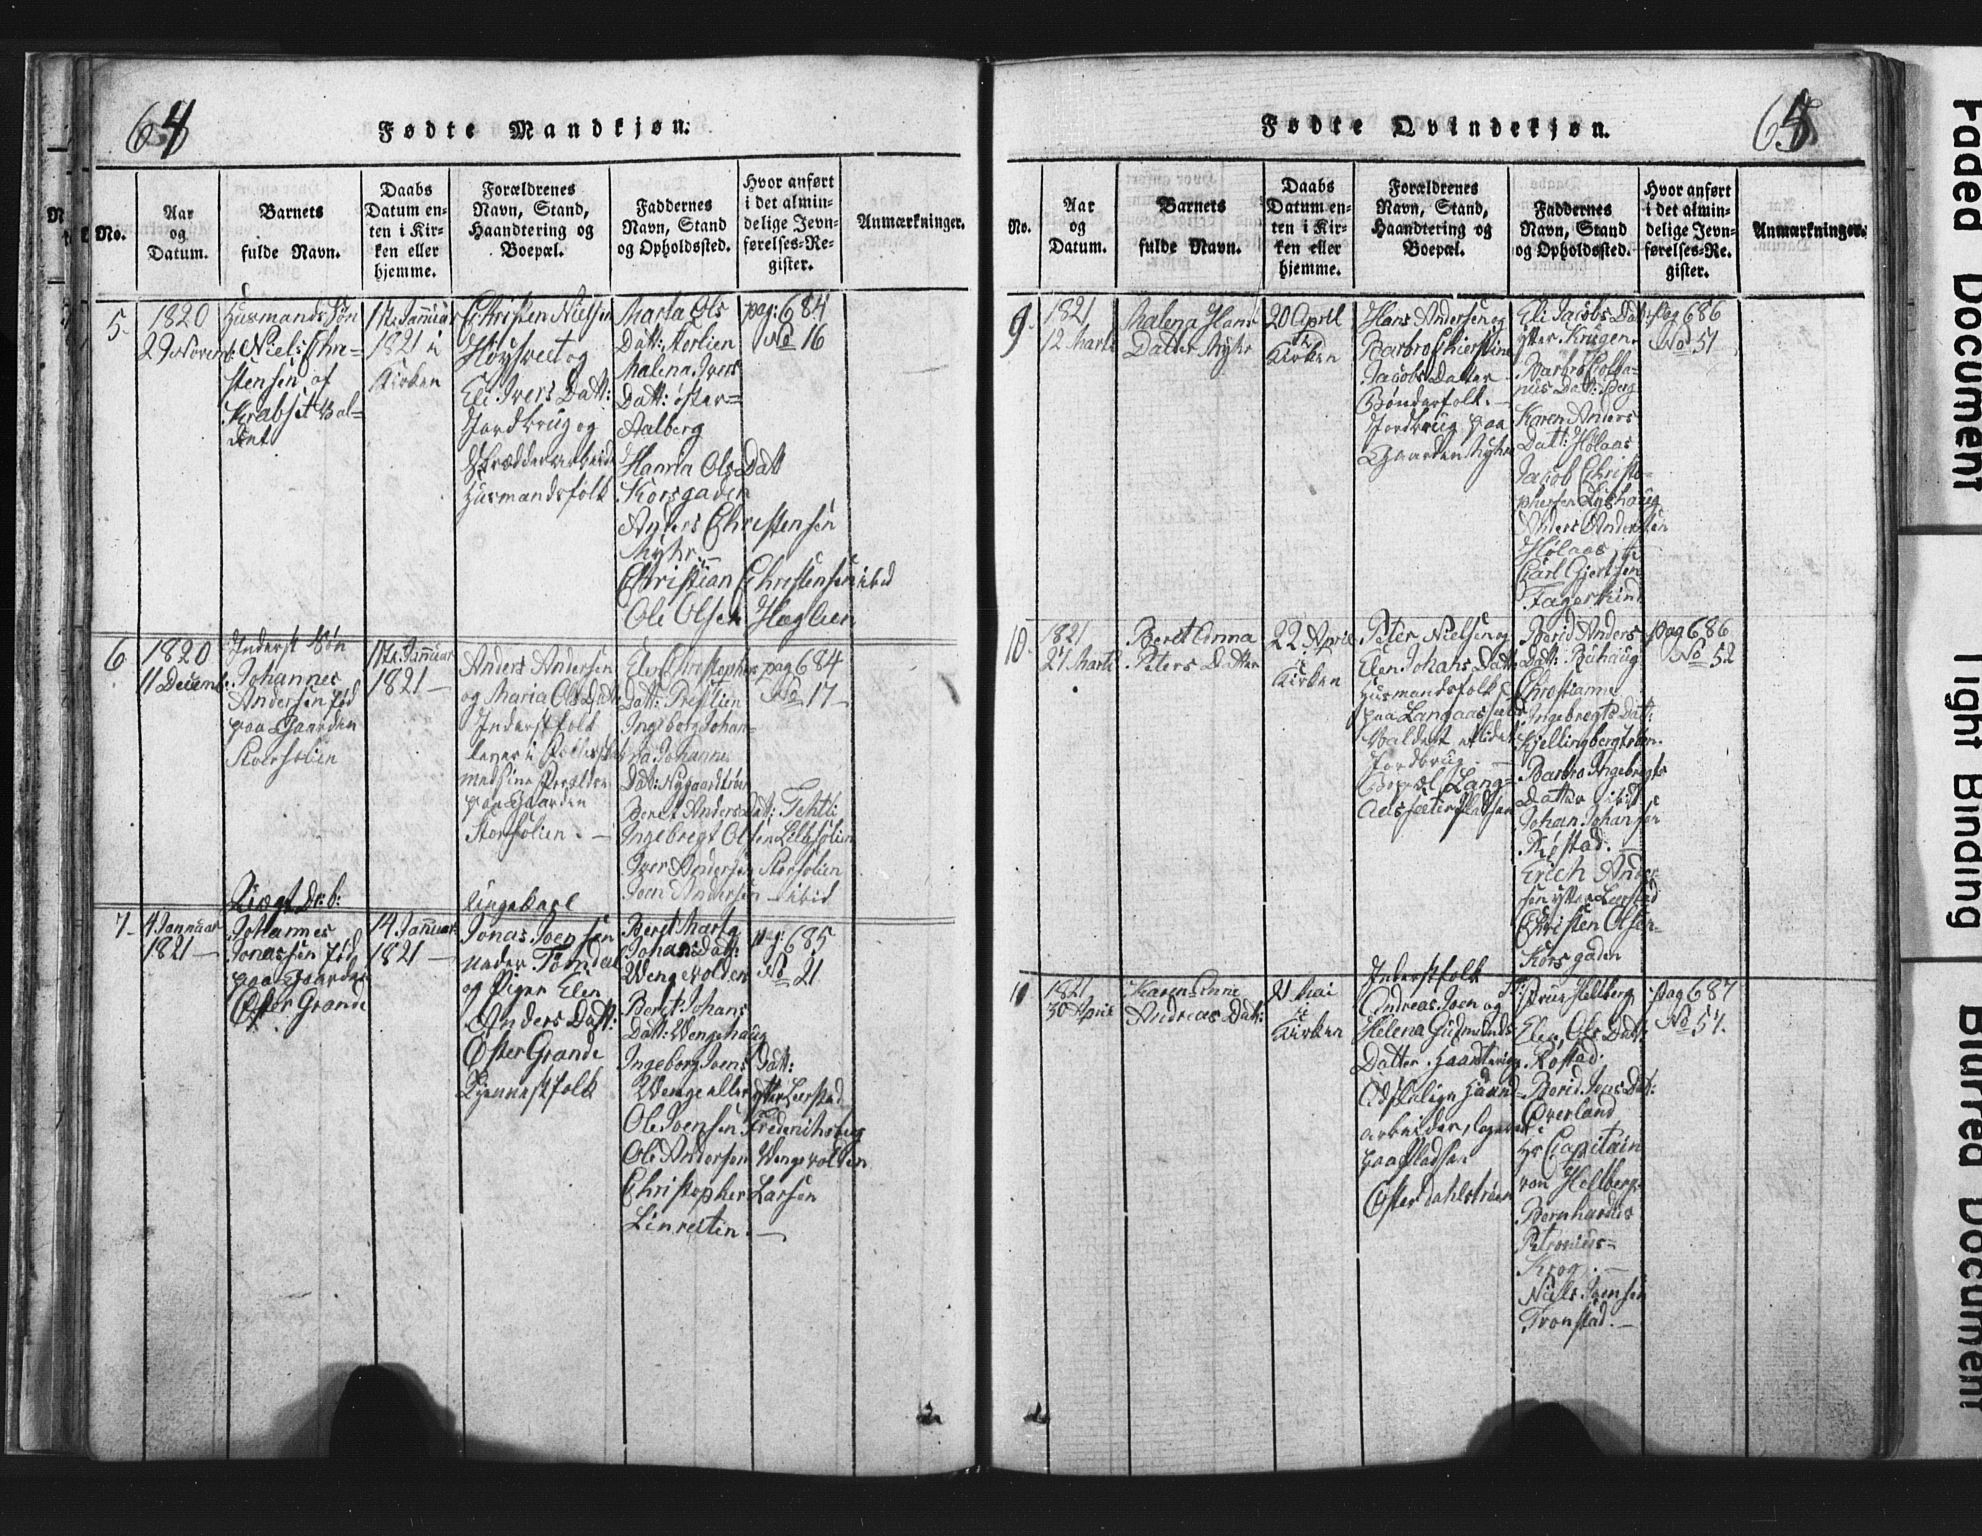 64
Fødte Mandkjøn.
No.
Aar
og
Datum.
Barnets
fulde Navn.
Daabs
Datum en-
ten i Kir-
ken eller
hjemme.
Forældrenes
Navn, Stand,
Haandtering og
Boepæl.
Faddernes
Navn, Stand
og Opholdssted.
Hvor anført
i det almin-
delige Jevn-
førelses-Re-
gister.
Anmærkninger.
5.
1820
29 Novemb:
Huusmands Søn
Niels Chri-
stensen af
Krabset Val-
14de Januar
1821 i
Kirken
Christen Nielsen
Høysvect og
Eli Ivers Datt:
Jordbrug og
Skrædderarbeide
Huusmandsfolk
Marta Ols
Datt: Sterlien
Malena Ivers
Datt: øster=
Aalberg
Hanna Ols Datt
Korsgaden
Anders Christensen
Myhr
Christian Christensen ibid
Ole Olsen Hæglien
pag: 684
No 16
6
1820
11 Decemb:
Inderst Søn
Johannes
Andersen fød
paa Gaarden
Storsølien
14de Januar
1821 —
Anders Andersen
og Maria Ols Datt
Inderstfolk
med sine Forældre
paa Gaarden
Storsølien. —
Elen Christophers
Datt: Prestlien
Ingeborg Johan=
na Johannes
Datt: Nygaardtrøen
Beret Anders Datt: Tehtli
Ingebregt Olsen Lillesølien
Iver Andersen Storsølien
Joen Andersen — ibid
pag 684
No 17
7.
4 Januar
1821 —
Uægt Dr: b:
Johannes
Jonassen fød
paa Gaarden
Øster Grande
14 Januar
1821 —
Ungekarl
Jonas Joensen
Nedre Tømdal
og Pigen Elen
Anders Datt:
Øster Grande
Tjennestfolk
Beret Marta
Johans Datt:
Wengevolden
Berit Johans
Datt: Wengehaug
Ingeborg Joens Datt:
Wenge eller ytter Leerstad
Ole Joensen Frederichsberg
Ole Andersen Wengevolden
Christopher Larsen
Linresten. —
pag: 685
No 21
65
Fødte Qvindekjøn.
No.
Aar
og
Datum.
Barnets
fulde Navn.
Daabs
Datum en-
ten i Kir-
ken eller
hjemme.
Forældrenes
Navn, Stand,
Haandtering og
Boepæl.
Faddernes
Navn, Stand
og Opholdssted.
Hvor anført
i det almin-
delige Jevn-
førelses-Re-
gister.
Anmærkninger.
9.
1821
12 Marti
Malena Hans
Datter Myhr
20 April
i
Kirken
Hans Andersen og
Barbro Chierstine
Jacobs Datter
Bønderfolk. —
Jordbrug paa
Gaarden Myhr
Eli Jacobs Datt:
ytter Krugen.
Barbro Petro-
nius Datt: Berg
Karen Anders
Datt: Hølaas
Jacob Christo-
phersen Lyshaug
Anders Andersen
Hølaas
Carl Gjertsen
Fagerhind
pag 686
No 51
10.
1821
21 Marti
Beret Anna
Peters Datter
22 April
i
Kirken
Peter Nielsen og
Elen Johans Datt:
Huusmandsfolk
paa Langaassæter
Jordbrug. —
Bopæl Lang=
aassæterpladsen
Berid Anders
Datt: Buhaug
Christianna
Ingebregts Datt:
Kjellingbergtrøen.
Barbro Ingebregts
Datter ibid
Johan Johansen
Røstad. —
Erich Ander-
sen ytter Leerstad
Christen Olsen
Kors gaden
pag 686
No 52
11
1821
30 April
Karen Anne
Andreas Datt:
21 Mai
i
Kirken
Inderstfolk
Andreas Joen og
Helena Gudmunds
Datter. Haandtering
Adskilige Haand=
arbeider, logerede i
paa Pladsen
Øster Dahlstrøen
Fru Hellberg
Elen Ols Datt:
Rostad.
Berid Jens Datt:
Overland
Hr Capitain
von Hellberg
Bernhardus
Petronius=
Krog. —
Niels Joensen
Tronstad. —
pag 687
No 57.
Faded Document
Tight Binding
Blurred Document